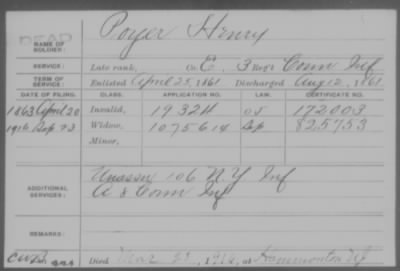 DEAD
Poyer Henry
NAME OF SOLDIER:
SERVICE: Late rank, Co. E, 3 Reg't Conn Inf
TERM OF SERVICE: Enlisted April 25, 1861 Discharged Aug 12, 1861
DATE OF FILING. CLASS. APPLICATION NO. LAW. CERTIFICATE NO.
1863 April 20 Invalid, 19324 O S 172003
1916 Sep 23 Widow, 1075614 825753
Minor,
ADDITIONAL SERVICES: 106 N.Y. Inf
A 8 Conn Inf
REMARKS:
Died Mar 1916, at Hammonton NJ